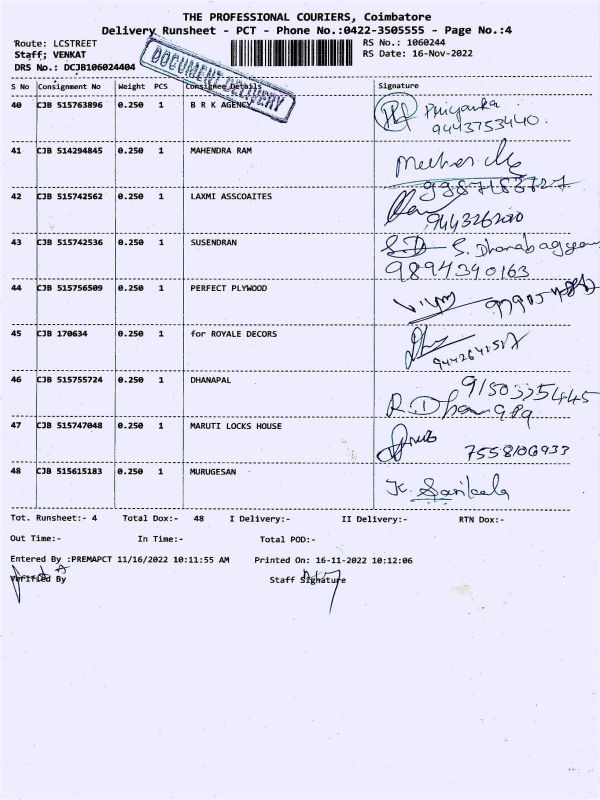 THE PROFESSIONAL COURIERS, Coimbatore
Delivery Runsheet - PCT - Phone No.:0422-3505555 - Page No.:4
Route: LCSTREET
RS No.: 1060244
Staff; VENKAT
RS Date: 16-Nov-2022
DRS No.: DCJB106024404
DOCUMENT DELIVERY
S No Consignment No Weight PCS Consignee Details Signature
40 CJB 515763896 0.250 1 B R K AGENCY Priyanka
9443753440.
41 CJB 514294845 0.250 1 MAHENDRA RAM
9987183727
42 CJB 515742562 0.250 1 LAXMI ASSCOAITES
9443262020
43 CJB 515742536 0.250 1 SUSENDRAN S. Dhanabagyam
9894390163
44 CJB 515756509 0.250 1 PERFECT PLYWOOD
45 CJB 170634 0.250 1 for ROYALE DECORS
46 CJB 515755724 0.250 1 DHANAPAL 9150335445
R. Dhanapa
47 CJB 515747048 0.250 1 MARUTI LOCKS HOUSE
7558106933
48 CJB 515615183 0.250 1 MURUGESAN K. Sasikala
Tot. Runsheet:- 4 Total Dox:- 48 I Delivery:- II Delivery:- RTN Dox:-
Out Time:- In Time:- Total POD:-
Entered By :PREMAPCT 11/16/2022 10:11:55 AM Printed On: 16-11-2022 10:12:06
Verified By Staff Signature